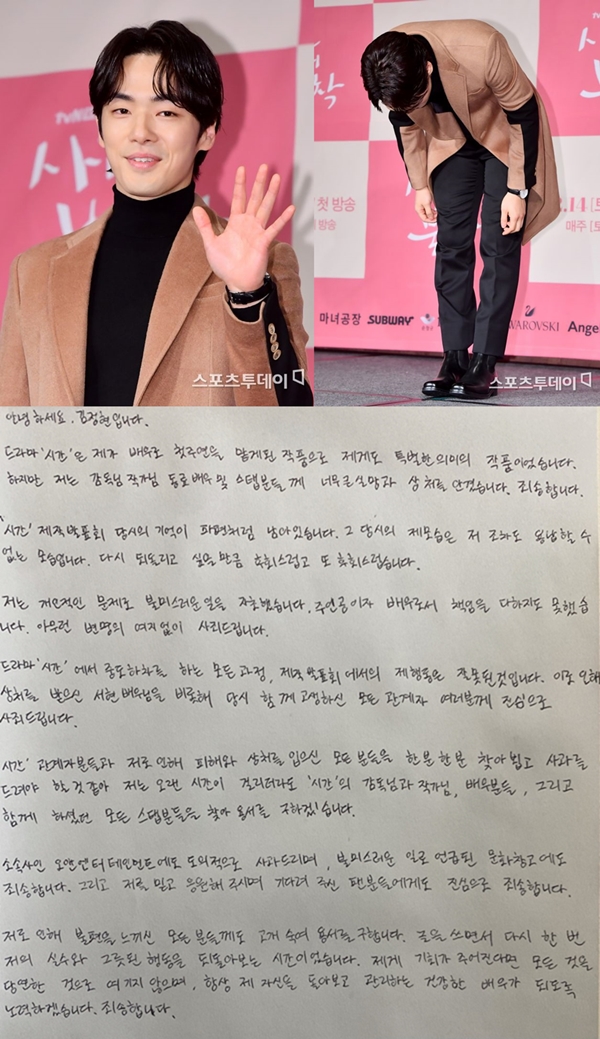 tvN
사
첫 방송
방송
.14 [토
매주 [토
마녀공장 SUBWAY WAROVSKI Ange
스포츠투데이
스포츠투데이
안녕하세요. 김정현입니다.
드라마 '시간'은 제가 배우로 첫주연을 맡게된 작품으로 제게도 특별한 의미의 작품이었습니다.
하지만 저는 감독님 작가님 동료배우 및 스탭분들께 너무 큰 실망과 상처를 안겼습니다. 죄송합니다.
'시간' 제작발표회 당시의 기억이 파편처럼 남아있습니다. 그 당시의 제모습은 저 조차도 용납할 수
없는 모습입니다. 다시 되돌리고 싶을만큼 후회스럽고 또 후회스럽습니다.
저는 개인적인 문제로 불미스러운 일을 자초했습니다. 주인공이자 배우로서 책임을 다하지도 못했습
니다. 아무런 변명의 여지 없이 사죄드립니다.
드라마 '시간'에서 중도하차를 하는 모든 과정, 제작발표회에서의 제행동은 잘못된 것입니다. 이로 인해
상처를 받으신 서현 배우님을 비롯해 당시 함께 고생하신 모든 관계자 여러분께 진심으로
사죄드립니다.
시간' 관계자분들과 저로 인해 피해와 상처를 입으신 모든 분들을 한분 한분 찾아뵙고 사과를
드려야 할 것 같아 저는 오랜 시간이 걸리더라도 '시간'의 감독님과 작가님, 배우분들, 그리고
함께 하셨던 모든 스탭분들을 찾아 용서를 구하겠습니다.
소속사인 오앤엔터테인먼트에도 도의적으로 사과드리며, 불미스러운 일로 언급된 문화창고에도
죄송합니다. 그리고 저를 믿고 응원해 주시며 기다려 주신 팬분들에게도 진심으로 죄송합니다.
저로 인해 불편을 느끼신 모든 분들께도 고개 숙여 용서를 구합니다. 글을 쓰면서 다시 한 번
저의 실수와 그릇된 행동을 되돌아보는 시간이었습니다. 제게 기회가 주어진다면 모든 것을
당연한 것으로 여기지 않으며, 항상 제 자신을 돌아보고 관리하는 건강한 배우가 되도록
노력하겠습니다. 죄송합니다.